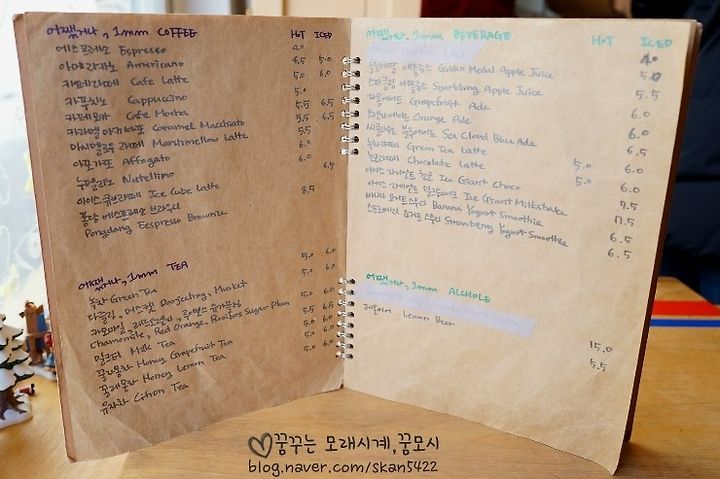 어쨌거나, 1mm COFFEE HOT ICED
에스프레소 Espresso 4.0
아메리카노 Americano 4.5 5.0
카페라떼 Cafe Latte 5.0 6.0
카푸치노 Cappuccino 5.0
카페모카 Cafe Mocha 5.5 6.5
카라멜 마키아또 Caramel Macchiato 5.5 6.5
마시멜로우 라떼 Marshmellow Latte 5.5
아포가토 Affogato 6.0
누텔리노 Nutellino
아이스큐브라떼 Ice Cube Latte 6.5
퐁당 에스프레소 브라우니 8.5
Pongdang Eespresso Brownie
어쨌거나, 1mm TEA
녹차 Green Tea 5.0 6.0
다즐링, 머스켓 Darjeeling, Musket 5.0 6.0
카모마일, 레드오렌지, 루이보스 슈가플럼
Chamomile, Red Orange, Rooibos Sugar Plum 5.0 6.0
밀크티 Milk Tea 5.5 6.5
꿀자몽차 Honey Grapefruit Tea 5.0 6.0
꿀레몬차 Honey Lemon Tea 5.0 6.0
유자차 Citron Tea 5.0 6.0
어쨌거나, 1mm BEVERAGE HOT ICED
골드메달 애플쥬스 Golden Medal Apple Juice 5.0
스파클링 애플쥬스 Sparkling Apple Juice 5.5
자몽에이드 Grapefruit Ade 6.0
오렌지에이드 Orange Ade 6.0
씨클라우드 블루에이드 Sea Cloud Blue Ade 6.0
녹차라떼 Green Tea Latte 6.5
초코라떼 Chocolate Latte 5.0 6.0
아이스 자이언트 초코 Ice Giant Choco 5.0 6.0
아이스 자이언트 밀크쉐이크 Ice Giant Milkshake 7.5
바나나 요거트 스무디 Banana Yogurt Smoothie 7.5
스트로베리 요거트 스무디 Strawberry Yogurt Smoothie 6.5
6.5
어쨌거나, 1mm ALCHOLE
레몬비어 Lemon Beer
15.0
5.5
♡꿈꾸는 모래시계,꿈모시
blog.naver.com/skan5422